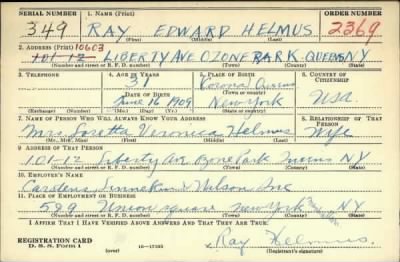 SERIAL NUMBER 1. NAME (Print) ORDER NUMBER
349 RAY EDWARD HELMUS 2369
(First) (Middle) (Last)
2. ADDRESS (Print) 10603
101-12 LIBERTY AVE OZONE PARK QUEENS NY
(Number and street or R. F. D. number) (Town) (County) (State)
3. TELEPHONE 4. AGE IN YEARS 5. PLACE OF BIRTH 6. COUNTRY OF CITIZENSHIP
31 Corona Queens
DATE OF BIRTH (Town or county)
June 16 1909 New York USA
(Exchange) (Number) (Mo.) (Day) (Yr.) (State or country)
7. NAME OF PERSON WHO WILL ALWAYS KNOW YOUR ADDRESS 8. RELATIONSHIP OF THAT PERSON
Mrs Loretta Veronica Helmus Wife
(Mr., Mrs., Miss) (First) (Middle) (Last)
9. ADDRESS OF THAT PERSON
101-12 Liberty Ave Ozone Park Queens NY
(Number and street or R. F. D. number) (Town) (County) (State)
10. EMPLOYER'S NAME
Wilson Inc
11. PLACE OF EMPLOYMENT OR BUSINESS
Union square New York NY
(Number and street or R. F. D. number) (Town) (County) (State)
I AFFIRM THAT I HAVE VERIFIED ABOVE ANSWERS AND THAT THEY ARE TRUE.
REGISTRATION CARD
D. S. S. Form 1 16-17105 Ray Helmus
(Registrant's signature)